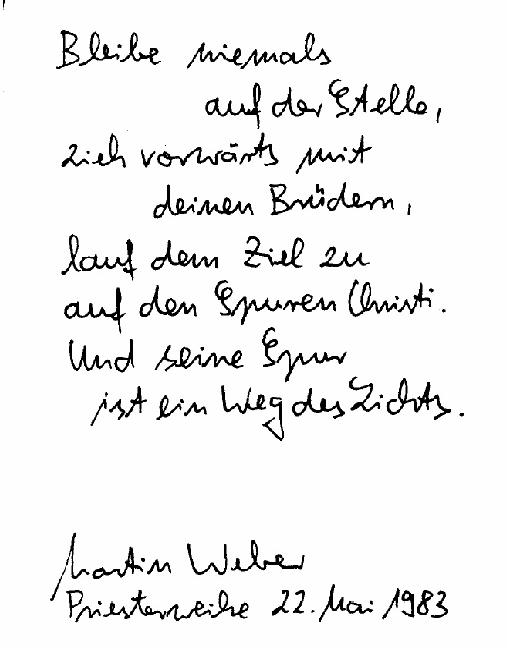 Bleibe niemals
auf der Stelle,
zieh vorwärts mit
deinen Brüdern,
lauf dem Ziel zu
auf den Spuren Christi.
Und seine Spur
ist ein Weg des Lichts.
Martin Weber
Priesterweihe 22. Mai 1983